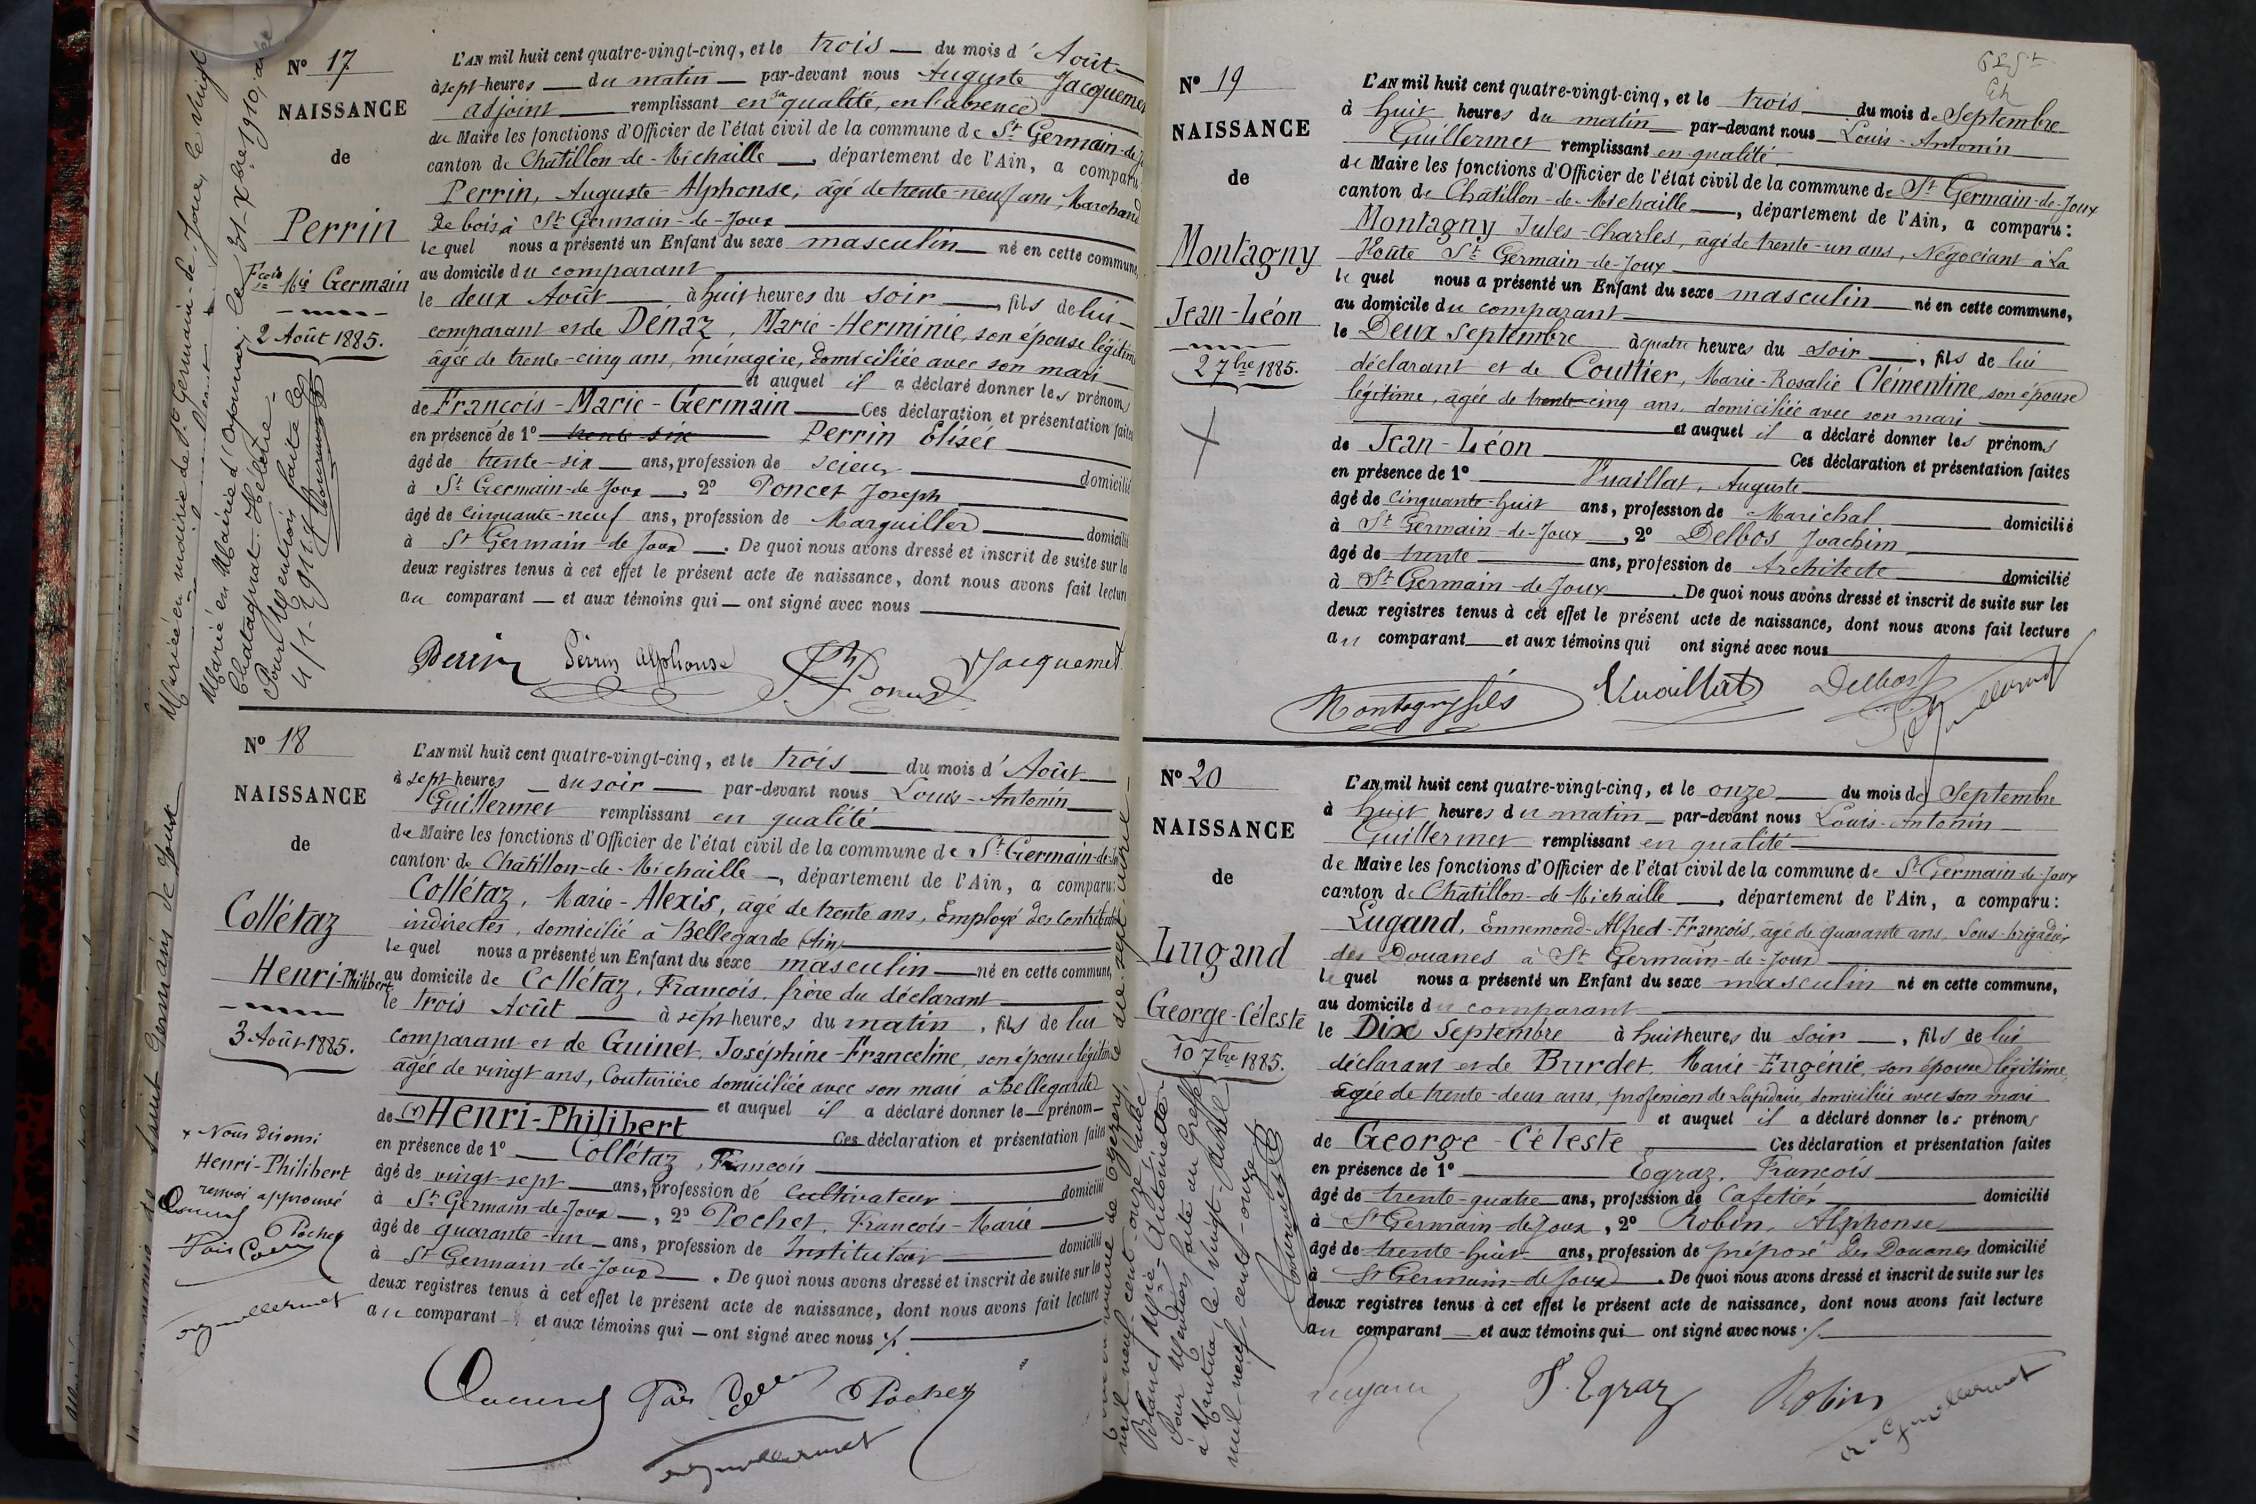 N° 17
NAISSANCE
de
Perrin
Fçois Mie Germain
2 Août 1885.
L'AN mil huit cent quatre-vingt-cinq, et le trois du mois d'Août
à sept heures du matin par-devant nous Auguste Jacquemet
adjoint remplissant en sa qualité, en l'absence
du Maire les fonctions d'Officier de l'état civil de la commune de St Germain-de-J
canton de Châtillon-de-Michaille, département de l'Ain, a comparu
Perrin, Auguste-Alphonse, âgé de trente-neuf ans, Marchand
de bois à St Germain-de-Joux
lequel nous a présenté un Enfant du sexe masculin né en cette commune,
au domicile du comparant
le deux Août à huit heures du soir, fils de lui
comparant et de Dénaz, Marie-Herminie, son épouse légitime
âgée de trente-cinq ans, ménagère, domiciliée avec son mari
et auquel il a déclaré donner les prénoms
de François-Marie-Germain Ces déclaration et présentation faites
en présence de 1° trente-six Perrin Elisée
âgé de trente-six ans, profession de scieur domicilié
à St Germain-de-Joux, 2° Poncet Joseph
âgé de cinquante-neuf ans, profession de Marguiller domicilié
à St Germain-de-Joux. De quoi nous avons dressé et inscrit de suite sur les
deux registres tenus à cet effet le présent acte de naissance, dont nous avons fait lecture
au comparant et aux témoins qui ont signé avec nous
Perrin Perrin Alphonse Jh Poncet Jacquemet
Mariée en mairie de St Germain-de-Joux, le vingt
Marié en Mairie d'Oyonnax, le 31-Xbre 1910, avec
Chatagnat Hélène
Pour Mention faite le
4/1-1911
N° 18
NAISSANCE
de
Collétaz
Henri-Philibert
3 Août 1885.
L'AN mil huit cent quatre-vingt-cinq, et le trois du mois d'Août
à sept heures du soir par-devant nous Louis-Antonin
Guillermet remplissant en qualité
de Maire les fonctions d'Officier de l'état civil de la commune de St Germain-de-J
canton de Châtillon-de-Michaille, département de l'Ain, a comparu:
Collétaz, Marie-Alexis, âgé de trente ans, Employé des Contributions
indirectes, domicilié à Bellegarde (Ain)
lequel nous a présenté un Enfant du sexe masculin né en cette commune,
au domicile de Collétaz, François, frère du déclarant
le trois Août à sept heures du matin, fils de lui
comparant et de Guinet, Joséphine-Franceline, son épouse légitime
âgée de vingt ans, Couturière domiciliée avec son mari à Bellegarde
et auquel il a déclaré donner le prénom
de (x) Henri-Philibert Ces déclaration et présentation faites
en présence de 1° Collétaz, François
âgé de vingt-sept ans, profession de Cultivateur domicilié
à St Germain-de-Joux, 2° Pochet, François-Marie
âgé de quarante-un ans, profession de Instituteur domicilié
à St Germain-de-Joux. De quoi nous avons dressé et inscrit de suite sur les
deux registres tenus à cet effet le présent acte de naissance, dont nous avons fait lecture
au comparant et aux témoins qui ont signé avec nous
x Nous disons
Henri-Philibert
renvoi approuvé
Pochet
Guillermet
Pochet
Guillermet
N° 19
NAISSANCE
de
Montagny
Jean-Léon
2 7bre 1885.
L'AN mil huit cent quatre-vingt-cinq, et le trois du mois de Septembre
à huit heures du matin par-devant nous Louis-Antonin
Guillermet remplissant en qualité
de Maire les fonctions d'Officier de l'état civil de la commune de St Germain-de-Joux
canton de Châtillon-de-Michaille, département de l'Ain, a comparu:
Montagny Jules-Charles, âgé de trente-un ans, Négociant à La
Voûte St Germain-de-Joux
lequel nous a présenté un Enfant du sexe masculin né en cette commune,
au domicile du comparant
le Deux Septembre à quatre heures du soir, fils de lui
déclarant et de Couttier, Marie-Rosalie Clémentine, son épouse
légitime, âgée de trente-cinq ans, domiciliée avec son mari
et auquel il a déclaré donner les prénoms
de Jean-Léon Ces déclaration et présentation faites
en présence de 1° Vuaillat, Auguste
âgé de cinquante-huit ans, profession de Maréchal domicilié
à St Germain-de-Joux, 2° Delbos Joachim
âgé de trente ans, profession de Architecte domicilié
à St Germain-de-Joux. De quoi nous avons dressé et inscrit de suite sur les
deux registres tenus à cet effet le présent acte de naissance, dont nous avons fait lecture
au comparant et aux témoins qui ont signé avec nous
Montagny fils Vuaillat Delbos
Guillermet
N° 20
NAISSANCE
de
Lugand
George-Céleste
10 7bre 1885.
L'AN mil huit cent quatre-vingt-cinq, et le onze du mois de Septembre
à huit heures du matin par-devant nous Louis-Antonin
Guillermet remplissant en qualité
de Maire les fonctions d'Officier de l'état civil de la commune de St Germain-de-Joux
canton de Châtillon-de-Michaille, département de l'Ain, a comparu:
Lugand, Ennemond-Alfred-François, âgé de quarante ans, Sous-brigadier
des Douanes à St Germain-de-Joux
lequel nous a présenté un Enfant du sexe masculin né en cette commune,
au domicile du comparant
le Dix Septembre à huit heures du soir, fils de lui
déclarant et de Burdet, Marie-Eugénie, son épouse légitime,
âgée de trente-deux ans, profession de Lapidaire, domiciliée avec son mari
et auquel il a déclaré donner les prénoms
de George-Céleste Ces déclaration et présentation faites
en présence de 1° Egraz, François
âgé de trente-quatre ans, profession de Cafetier domicilié
à St Germain-de-Joux, 2° Robin, Alphonse
âgé de trente-huit ans, profession de préposé des Douanes domicilié
à St Germain-de-Joux. De quoi nous avons dressé et inscrit de suite sur les
deux registres tenus à cet effet le présent acte de naissance, dont nous avons fait lecture
au comparant et aux témoins qui ont signé avec nous
Lugand F. Egraz Robin
Guillermet
mil neuf cent onze avec
Blanc Marie-Antoinette
Pour Mention faite au Greffe
à Nantua, le vingt-
mil-neuf-cent-onze